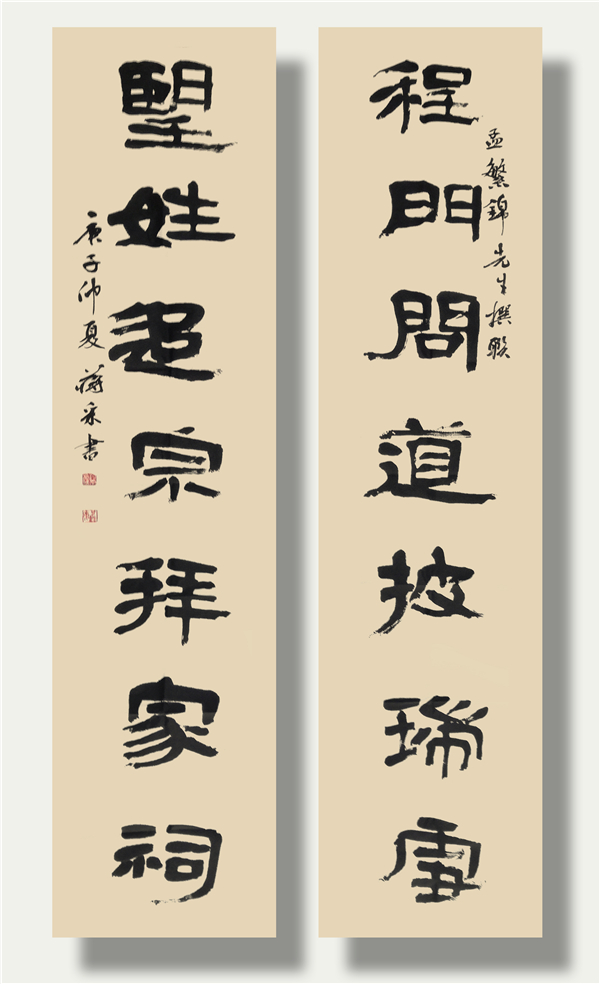 程門問道披瑞雪
孟繁錦先生撰聯
朢姓追宗拜家祠
庚子仲夏蔣采書